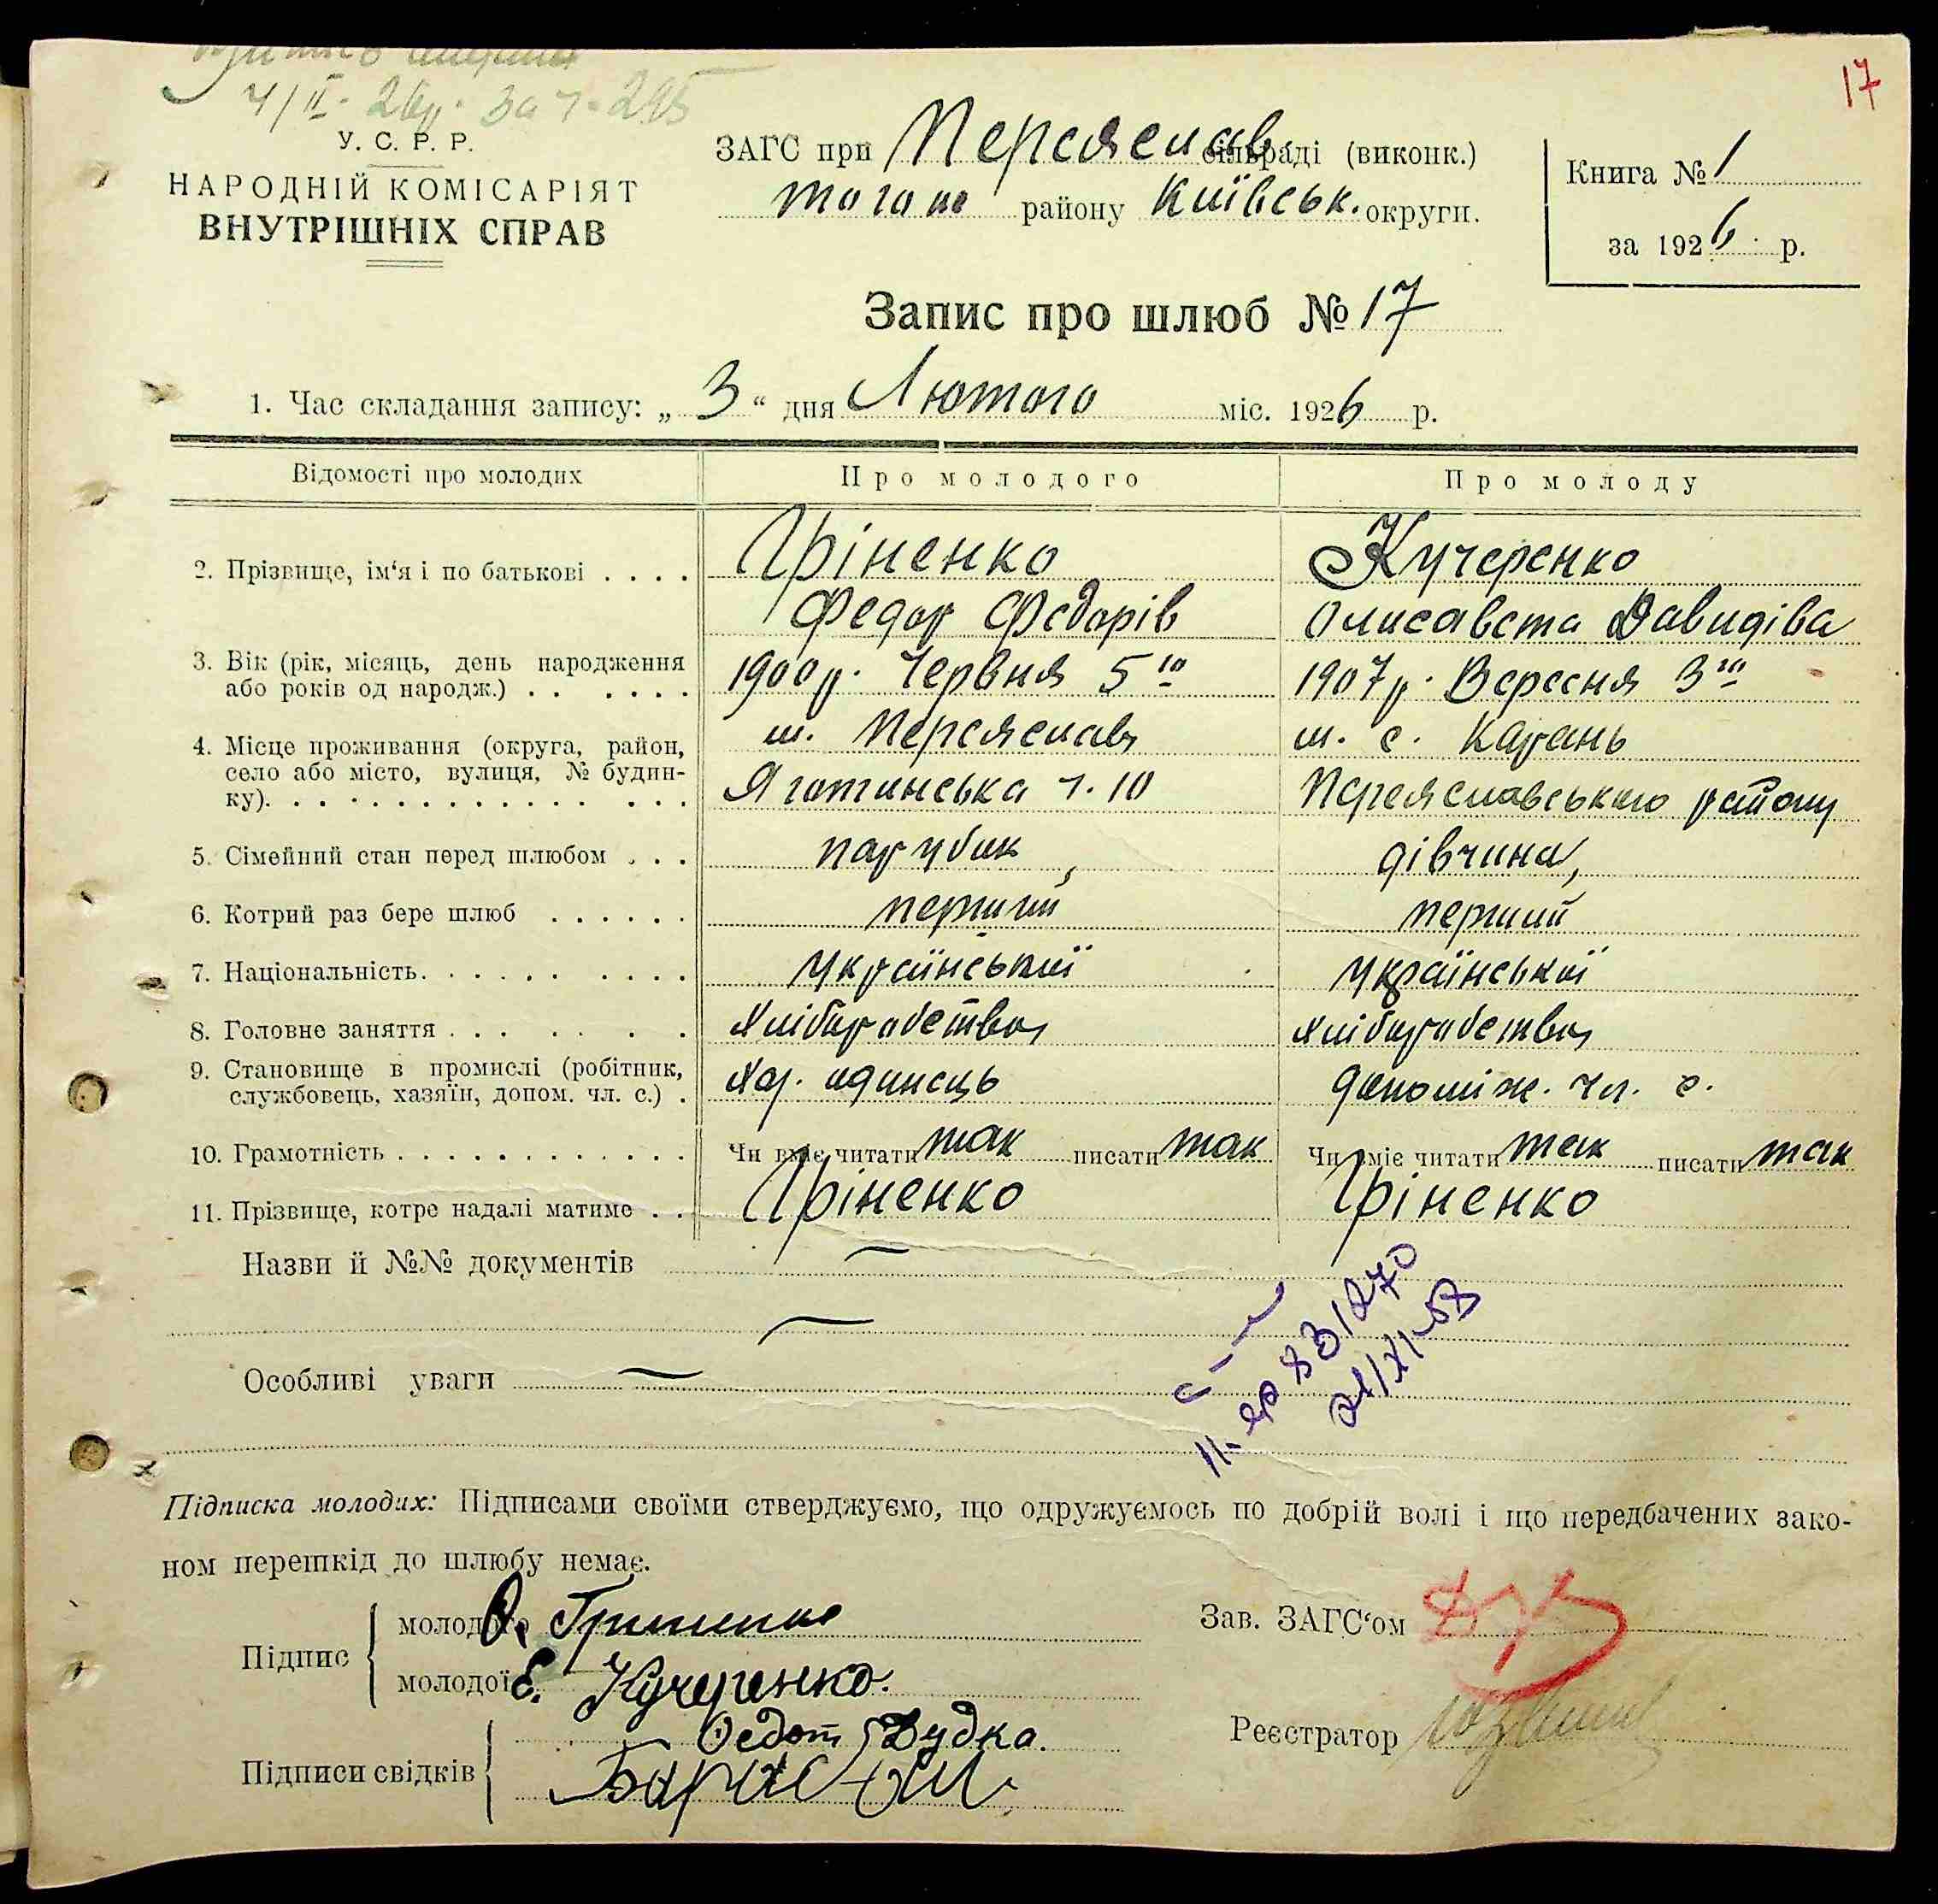 17
4/II - 26р. за ч. 295
У. С. Р. Р.
НАРОДНІЙ КОМІСАРІЯТ
ВНУТРІШНІХ СПРАВ
ЗАГС при Переяслав. сільраді (виконк.)
того ж району Київськ. округи.
Книга № 1
за 1926 р.
Запис про шлюб № 17
1. Час складання запису: „ 3 “ дня Лютого міс. 1926 р.
Відомості про молодих Про молодого Про молоду
2. Прізвище, ім‘я і по батькові . . . . Гріненко Кучеренко
Федор Федорів Олисавета Давидіва
3. Вік (рік, місяць, день народження або років од народж.) . . . . . . 1900р. Червня 5го 1907р. Вересня 3го
4. Місце проживання (округа, район, село або місто, вулиця, № будинку). м. Переяслав м. с. Карань
Яготинська ч. 10 Переяславського району
5. Сімейний стан перед шлюбом . . . парубик, дівчина,
6. Котрий раз бере шлюб . . . . . . перший перший
7. Національність. . . . . . . . . . української української
8. Головне заняття . . . . . . хліборобство хліборобство
9. Становище в промислі (робітник, службовець, хазяїн, допом. чл. с.) . хаз. одинець допоміж. чл. с.
10. Грамотність . . . . . . . . . . . . . Чи вміє читати так писати так Чи вміє читати так писати так
11. Прізвище, котре надалі матиме . . Гріненко Гріненко
Назви й №№ документів
Особливі уваги
831270
21/XI-58
Підписка молодих: Підписами своїми стверджуємо, що одружуємось по добрій волі і що передбачених зако-
ном перешкід до шлюбу немає.
Підпис молодого Ф. Гриненко
молодої Е. Кучеренко.
Підписи свідків Федот Дудка.
Зав. ЗАГС‘ом
Реєстратор